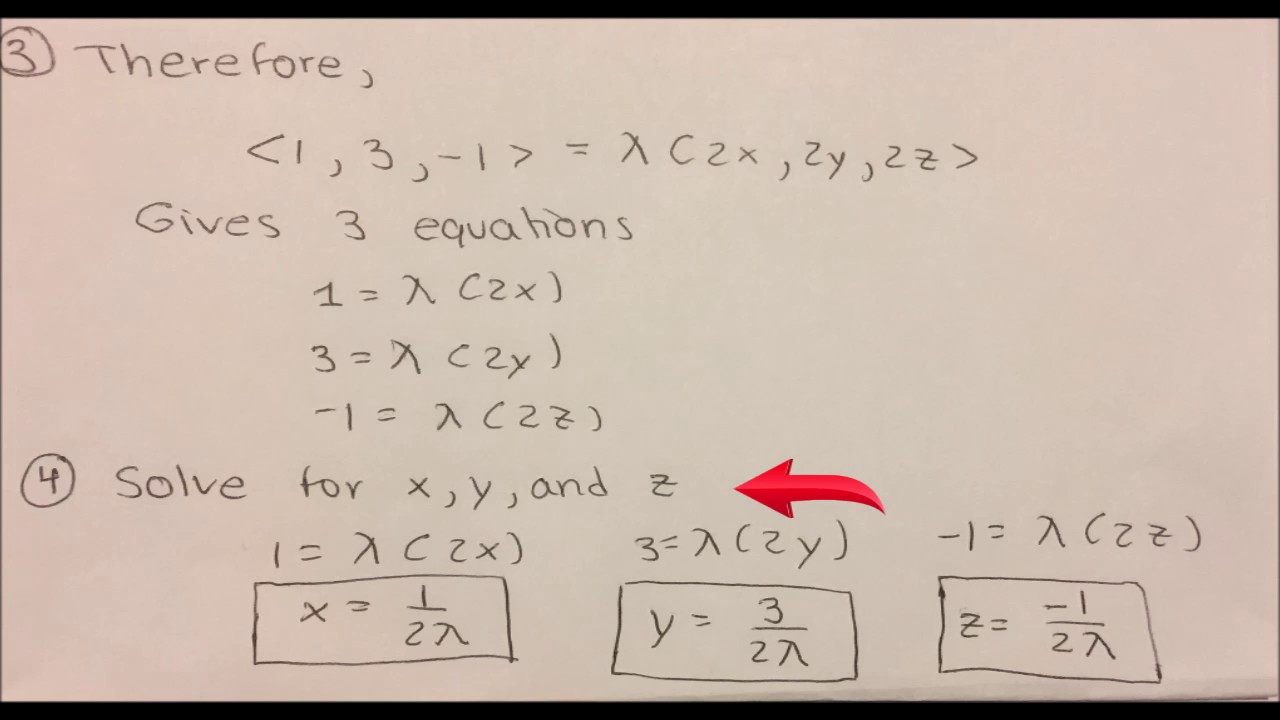 ③ Therefore,
<1, 3, -1> = λ(2x, 2y, 2z>
Gives 3 equations
1 = λ(2x)
3 = λ(2y)
-1 = λ(2z)
④ Solve for x, y, and z
1 = λ(2x) 3 = λ(2y) -1 = λ(2z)
x = 1/2λ y = 3/2λ z = -1/2λ